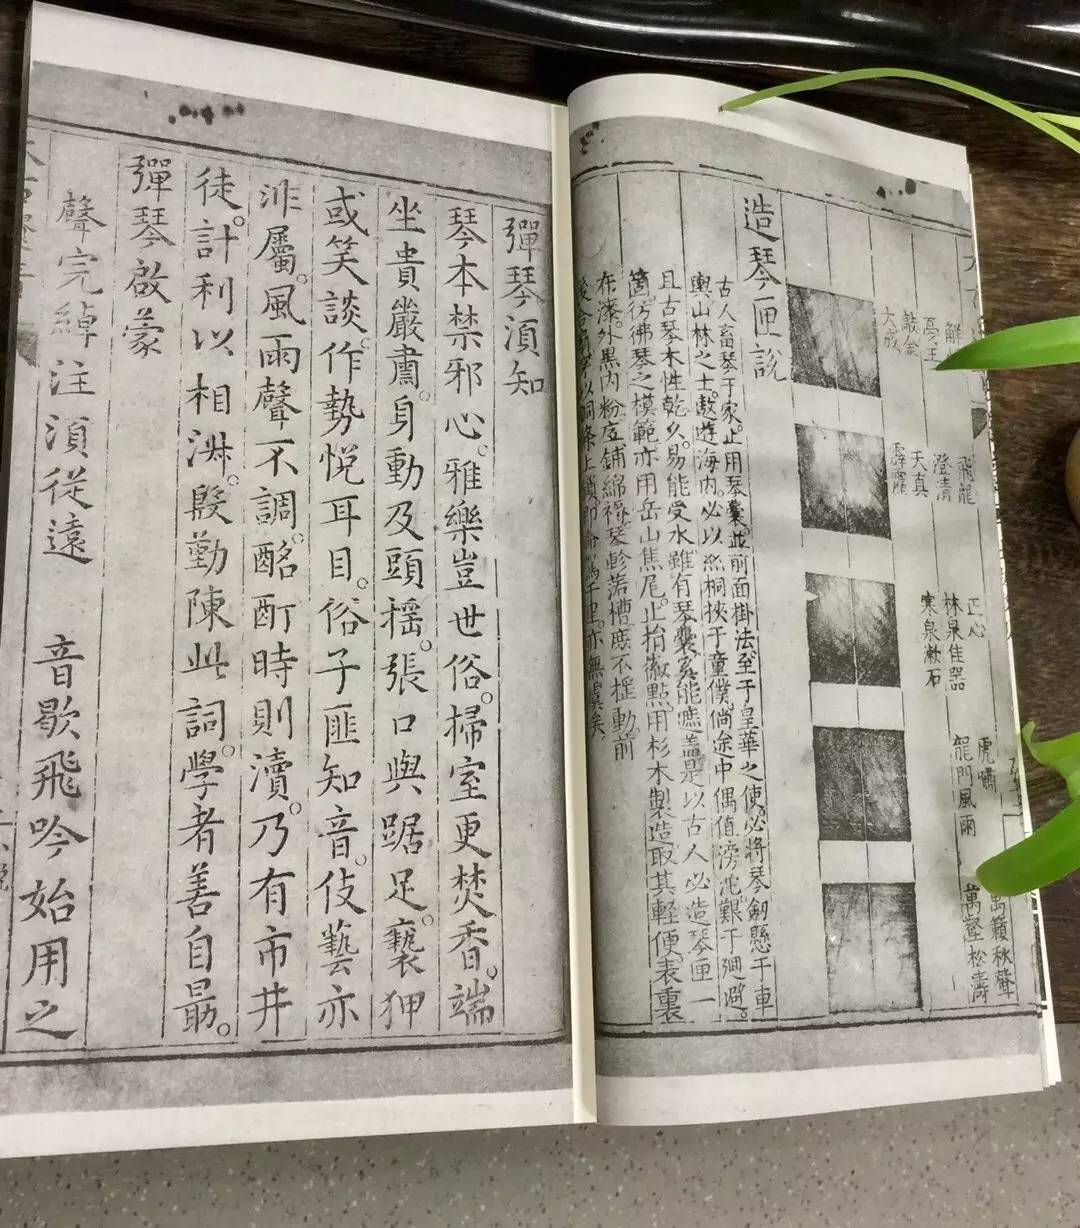 飛龍
澄清
天真
霹靂
敲金
大成
正心
林泉佳器
寒泉漱石
虎嘯
龍門風雨
萬籟秋聲
萬壑松濤
造琴匣說
古人畜琴于家。止用琴囊。並前面掛法。至于皇華之使。必將琴劒懸于車
輿。山林之士。遨遊海內。必以絲桐挾于童僕。倘途中偶值滂沱。艱于廻避。
且古琴木性乾久。易能受水。雖有琴囊。奚能遮蓋。是以古人必造琴匣一
箇。彷彿琴之模範。亦用岳山焦尾。止抬徽點。用杉木製造。取其輕便。表裏
布漆。外黑內粉。底鋪綿褥。琴軫落槽。庶不揺動。前
後以銅條上鎖。千里。亦無虞矣。
彈琴湏知
琴本禁邪心。雅樂豈世俗。掃室更焚香。端
坐貴嚴肅。身動及頭揺。張口與踞足。褻狎
或笑談。作勢悅耳目。俗子匪知音。伎藝亦
非屬。風雨聲不調。酩酊時則瀆。乃有市井
徒。計利以相淋。殷勤陳此詞。學者善自勗。
彈琴啟蒙
聲完綽注湏従遠　音歇飛吟始用之